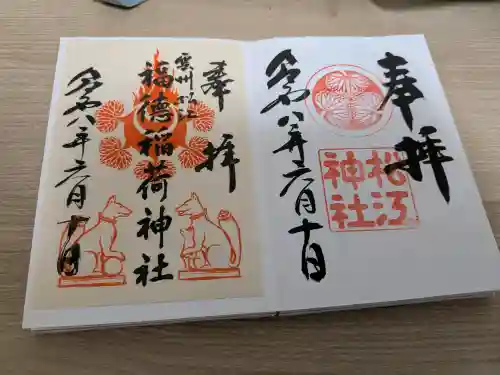 奉拝
松江神社
令和八年六月十日
奉拝
雲州松江
福徳稲荷神社
令和八年六月十日